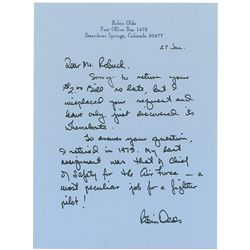 Robin Olds
Post Office Box 1478
Steamboat Springs, Colorado 80477
27 Jan.
Dear Mr. Roback.
Sorry to return your
$2.00 Bill so late, but I
misplaced your request and
have only just discovered its
whereabouts.
To answer your question,
I retired in 1973. My last
assignment was that of Chief
of Safety for the Air Force — a
most peculiar job for a fighter
pilot!
Robin Olds